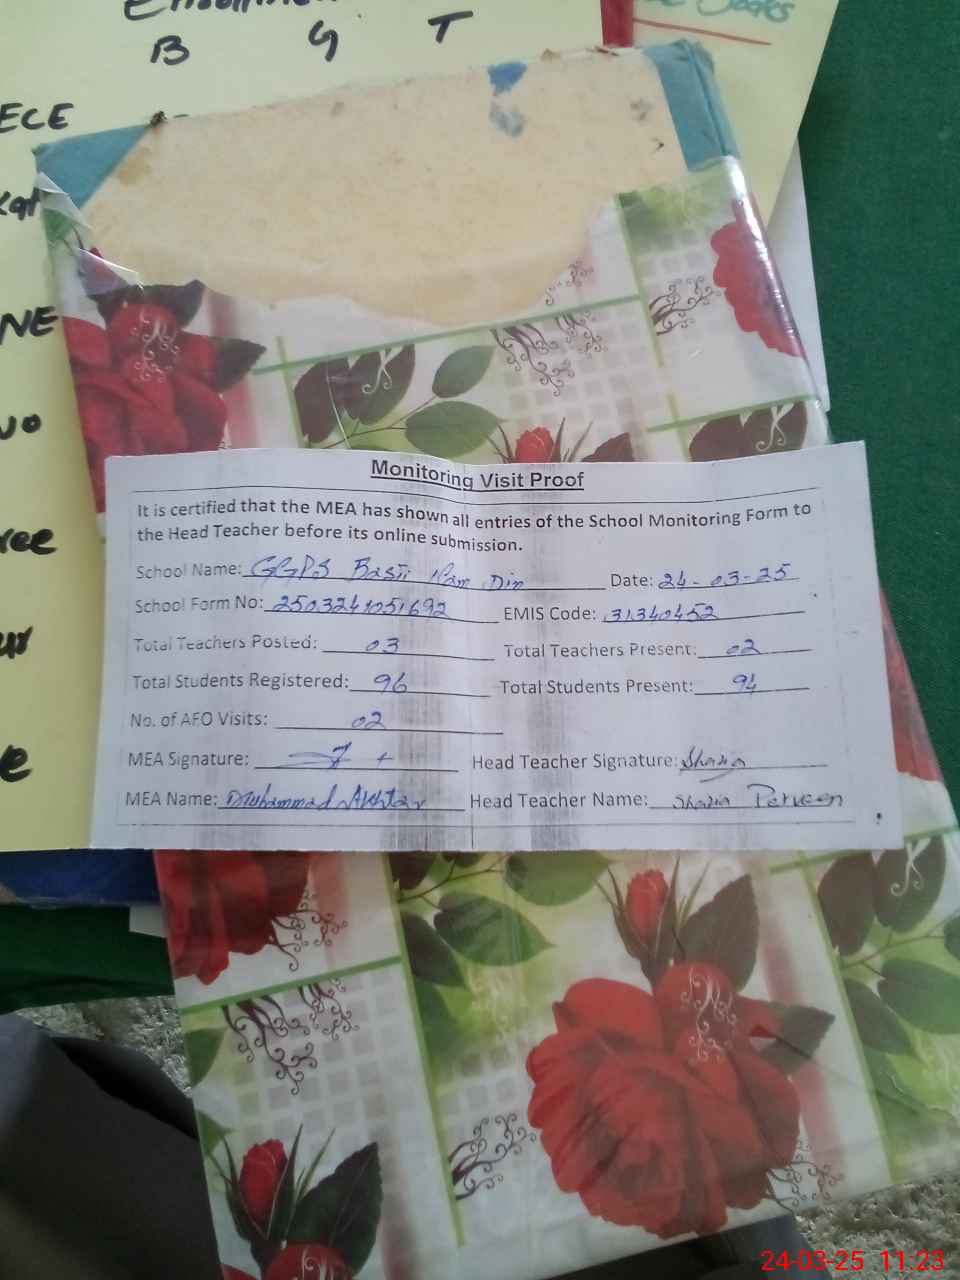 B G T
ECE
NE
Monitoring Visit Proof
It is certified that the MEA has shown all entries of the School Monitoring Form to
the Head Teacher before its online submission.
School Name: GGPS Basti Din Date: 24-03-25
School Form No: EMIS Code: 31340452
Total Teachers Posted: 03 Total Teachers Present: 02
Total Students Registered: 96 Total Students Present: 94
No. of AFO Visits: 02
MEA Signature: Head Teacher Signature: Shazia
MEA Name: Muhammad Akhtar Head Teacher Name: Shazia Parveen
24-03-25 11:23